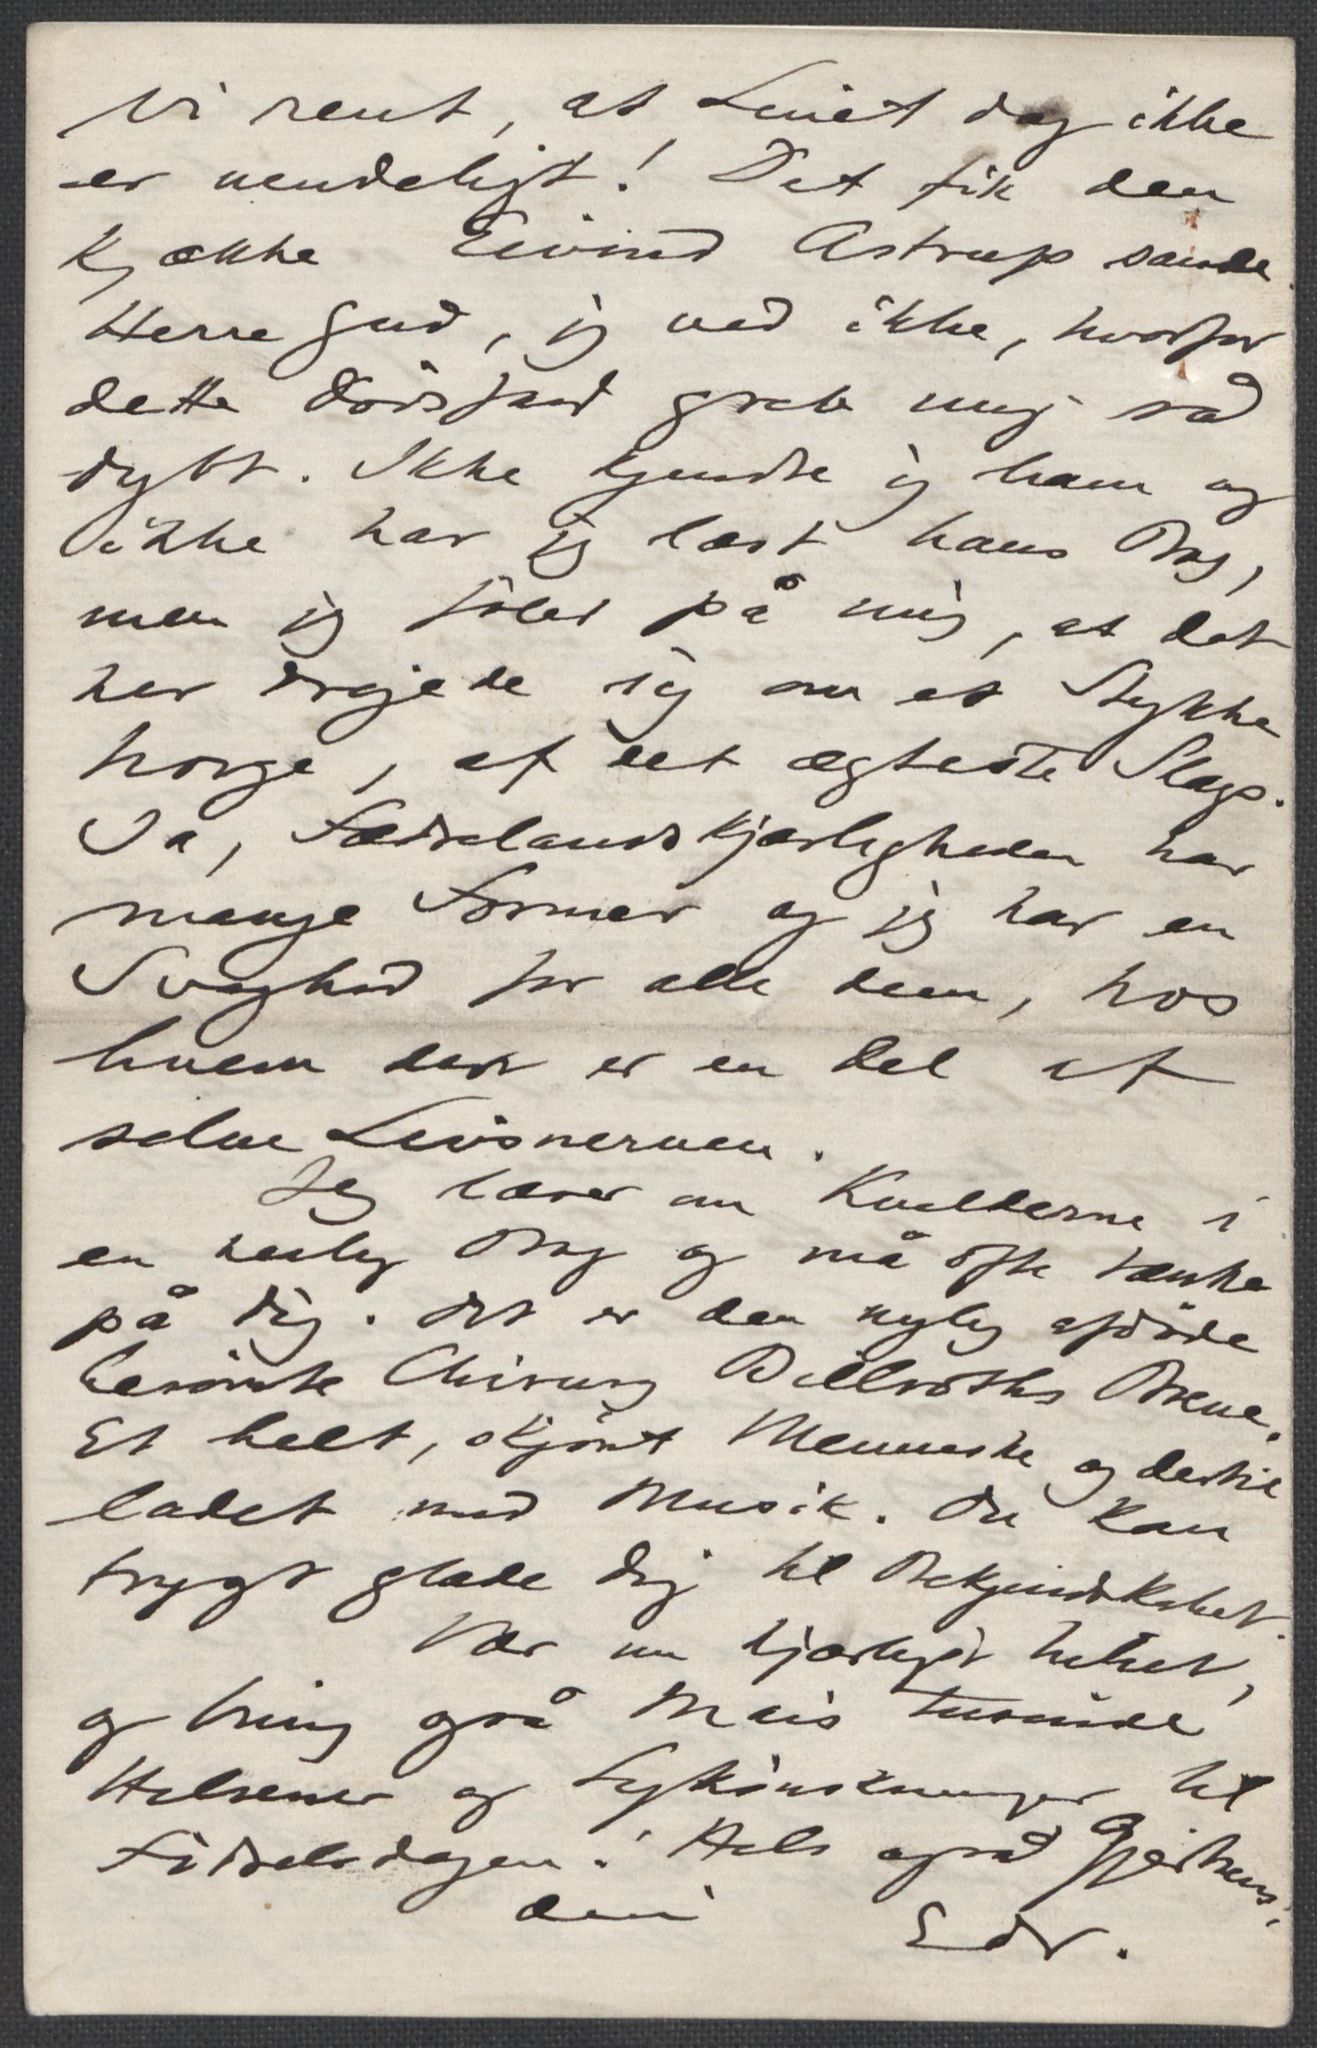 vi rent, at Livet dog ikke
er uendeligt! Det fik den
kjække Eivind Astrup sande.
Herregud, jeg ved ikke, hvorfor
dette Dødsfald greb mig så
dybt. Ikke kjendte jeg ham og
ikke har jeg læst hans Bog,
men jeg føler på mig, at det
her drejede sig om et Stykke
Norge, af det ægteste Slags.
Ja, Fædrelandskjærligheden har
mange Former og jeg har en
Svaghed for alle dem, hos
hvem den er en Del af
selve Livsnerven.
Jeg læser om Kvelderne i
en herlig Bog og må ofte tænke
på Dig. Det er den nylig afdøde
berømte Chirurg Billroths Breve.
Et helt, skjønt Menneske og dertil
ladet med Musik. Du kan
trygt glæde Dig til Bekjendtskabet.
Vær nu kjærligst hilset,
og bring også Mais tusinde
Hilsener og Lykønskninger til
Fødselsdagen! Hils også Gjertsens.
Din
Edv.